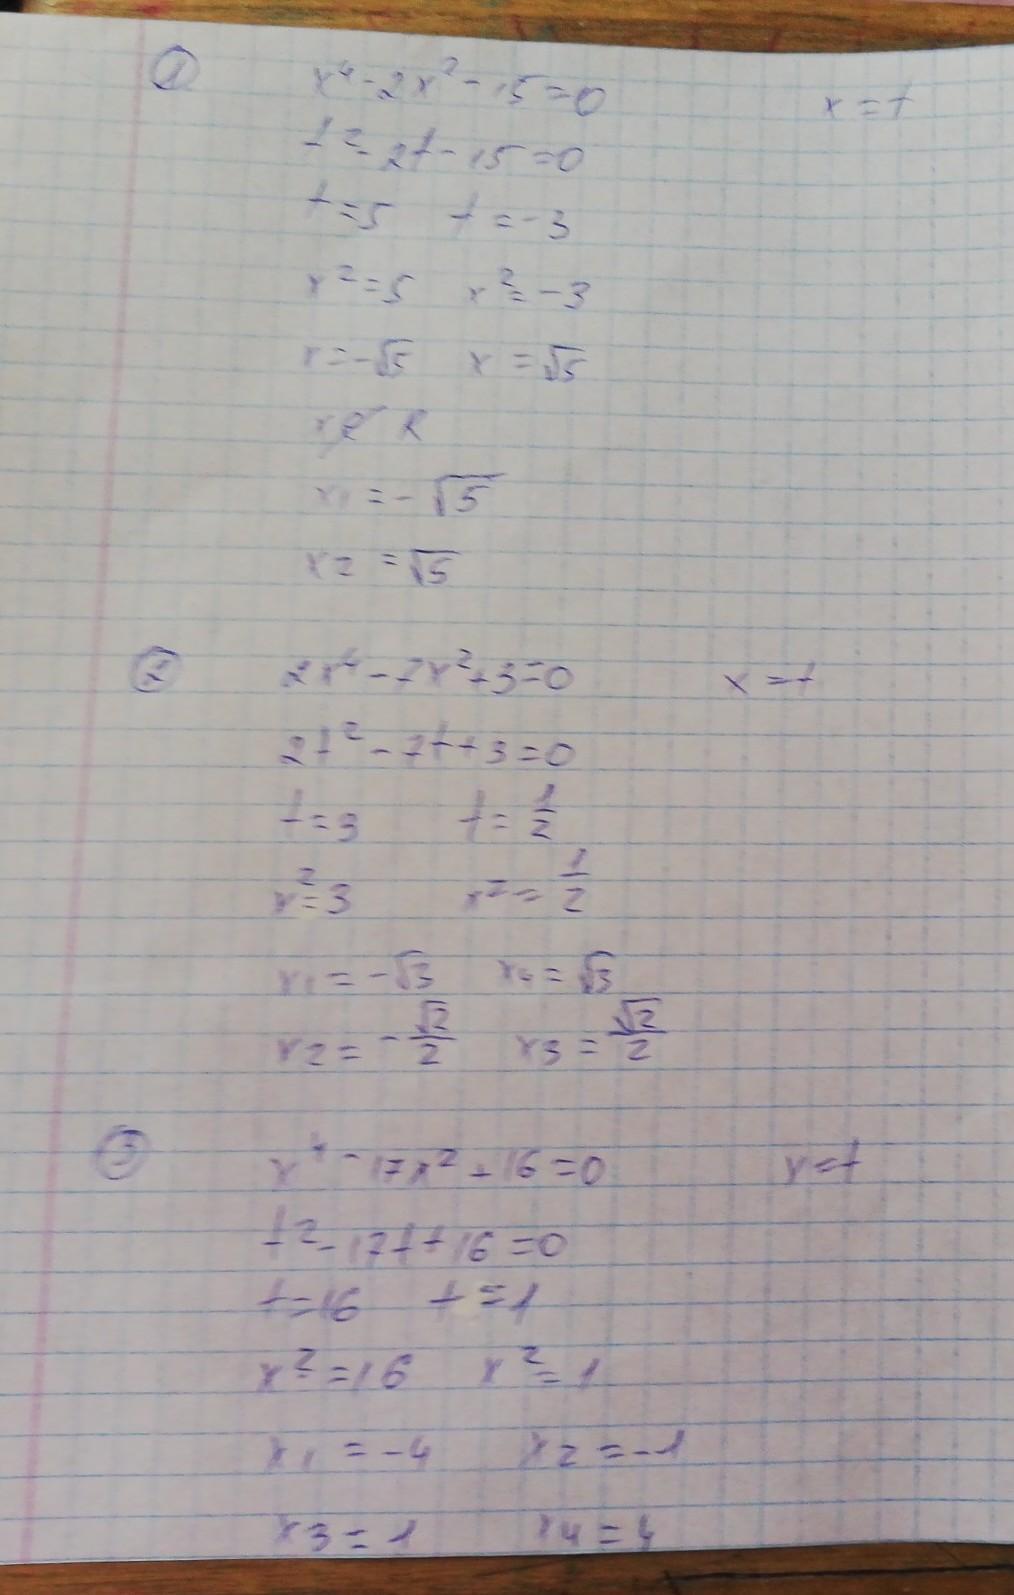 ① x⁴-2x²-15=0 x=t
t²-2t-15=0
t=5 t=-3
x²=5 x²=-3
x=-√5 x=√5
x∉ R
x₁=-√5
x₂=√5
② 2x⁴-7x²+3=0 x=t
2t²-7t+3=0
t=3 t=1/2
x²=3 x²=1/2
x₁=-√3 x₄=√3
x₂=-√2/2 x₃=√2/2
③ x⁴-17x²+16=0 x=t
t²-17t+16=0
t=16 t=1
x²=16 x²=1
x₁=-4 x₂=-1
x₃=1 x₄=4